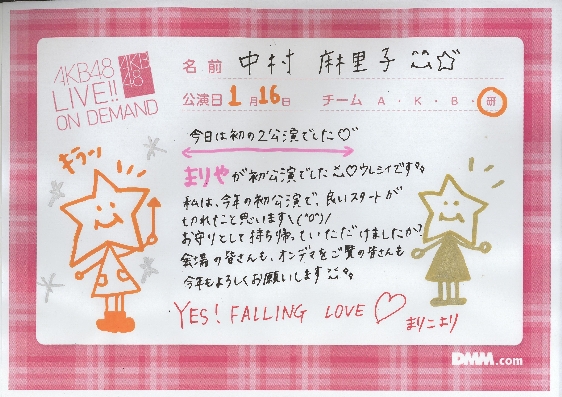 AKB48
LIVE!!
ON DEMAND
AKB
48
名前 中村 麻里子
公演日 1月16日 チーム A・K・B・研
今日は初の2公演でした♡
まりやが初公演でした♡ウレシイです。
私は、今年の初公演で、良いスタートが
切れたこと思います\(^o^)/
お守りとして持ち帰っていただけましたか?
会場の皆さんも、オンデマをご覧の皆さんも
今年もよろしくお願いします
キラーン
YES! FALLING LOVE ♡
まりこより
DMM.com